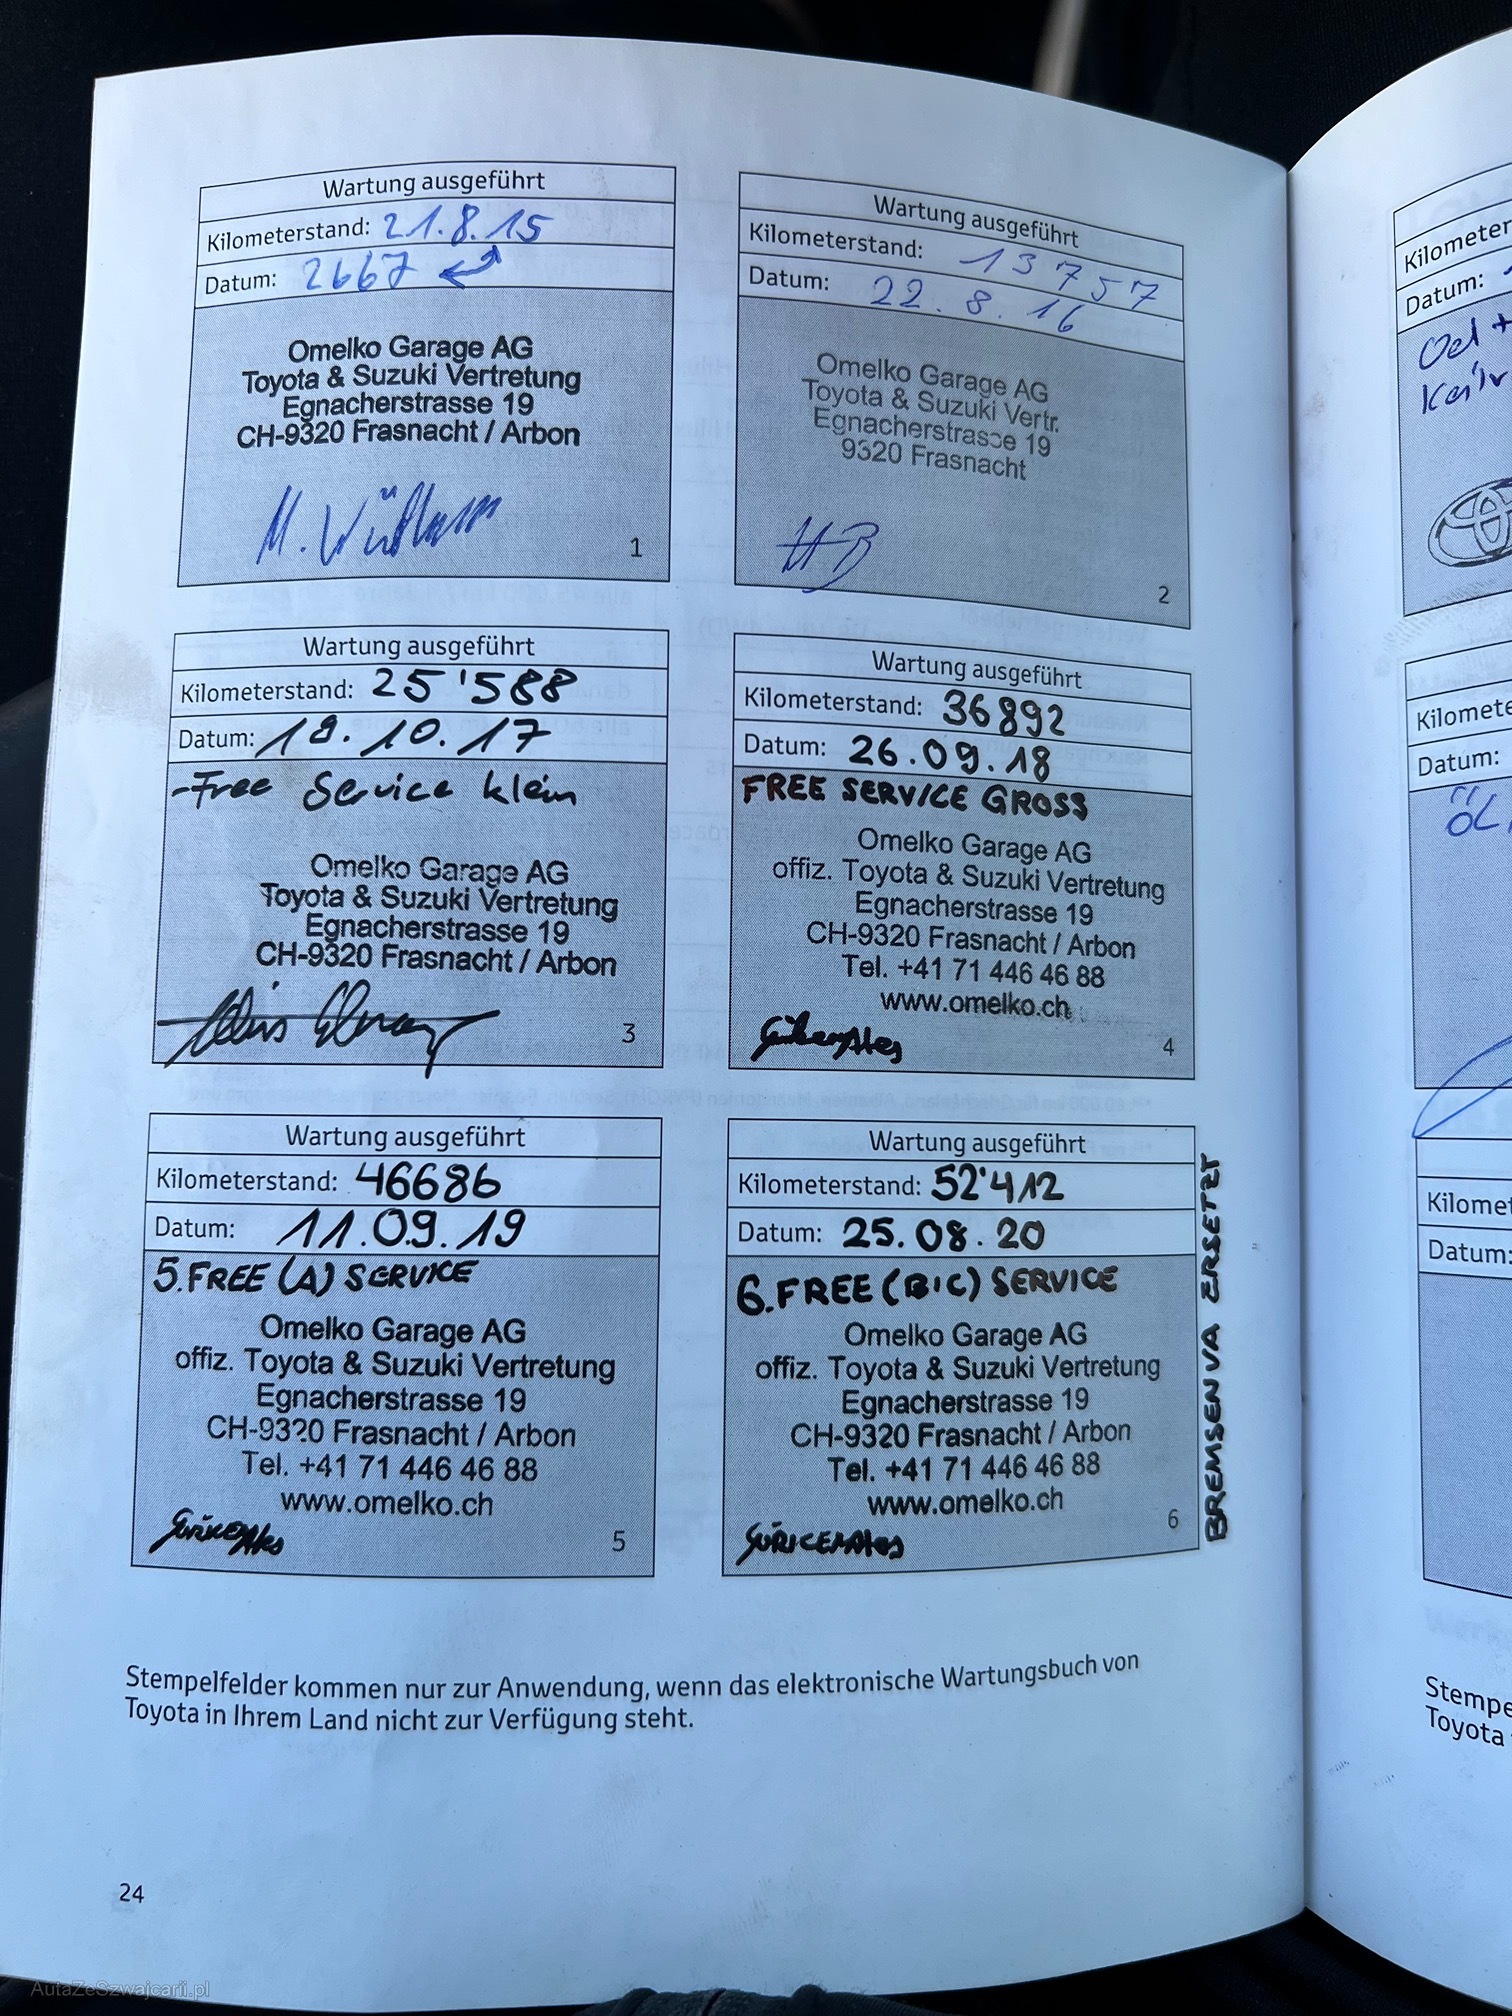 Wartung ausgeführt
Kilometerstand: 21.8.15
Datum: 2667
Omelko Garage AG
Toyota & Suzuki Vertretung
Egnacherstrasse 19
CH-9320 Frasnacht / Arbon
1
Wartung ausgeführt
Kilometerstand: 13757
Datum: 22.8.16
Omelko Garage AG
Toyota & Suzuki Vertr.
Egnacherstrasse 19
9320 Frasnacht
HB
2
Wartung ausgeführt
Kilometerstand: 25'588
Datum: 18.10.17
-Free Service klein
Omelko Garage AG
Toyota & Suzuki Vertretung
Egnacherstrasse 19
CH-9320 Frasnacht / Arbon
3
Wartung ausgeführt
Kilometerstand: 36892
Datum: 26.09.18
FREE SERVICE GROSS
Omelko Garage AG
offiz. Toyota & Suzuki Vertretung
Egnacherstrasse 19
CH-9320 Frasnacht / Arbon
Tel. +41 71 446 46 88
www.omelko.ch
4
Wartung ausgeführt
Kilometerstand: 46686
Datum: 11.09.19
5.FREE (A) SERVICE
Omelko Garage AG
offiz. Toyota & Suzuki Vertretung
Egnacherstrasse 19
CH-9320 Frasnacht / Arbon
Tel. +41 71 446 46 88
www.omelko.ch
5
Wartung ausgeführt
Kilometerstand: 52'412
Datum: 25.08.20
6.FREE (B/C) SERVICE
Omelko Garage AG
offiz. Toyota & Suzuki Vertretung
Egnacherstrasse 19
CH-9320 Frasnacht / Arbon
Tel. +41 71 446 46 88
www.omelko.ch
6
BREMSEN VA ERSETZT
Stempelfelder kommen nur zur Anwendung, wenn das elektronische Wartungsbuch von
Toyota in Ihrem Land nicht zur Verfügung steht.
24
Kilometer
Datum:
Oel +
Kilomete
Datum:
ÖL
Kilome
Datum:
Stempe
Toyota
AutaZeSzwajcarii.pl